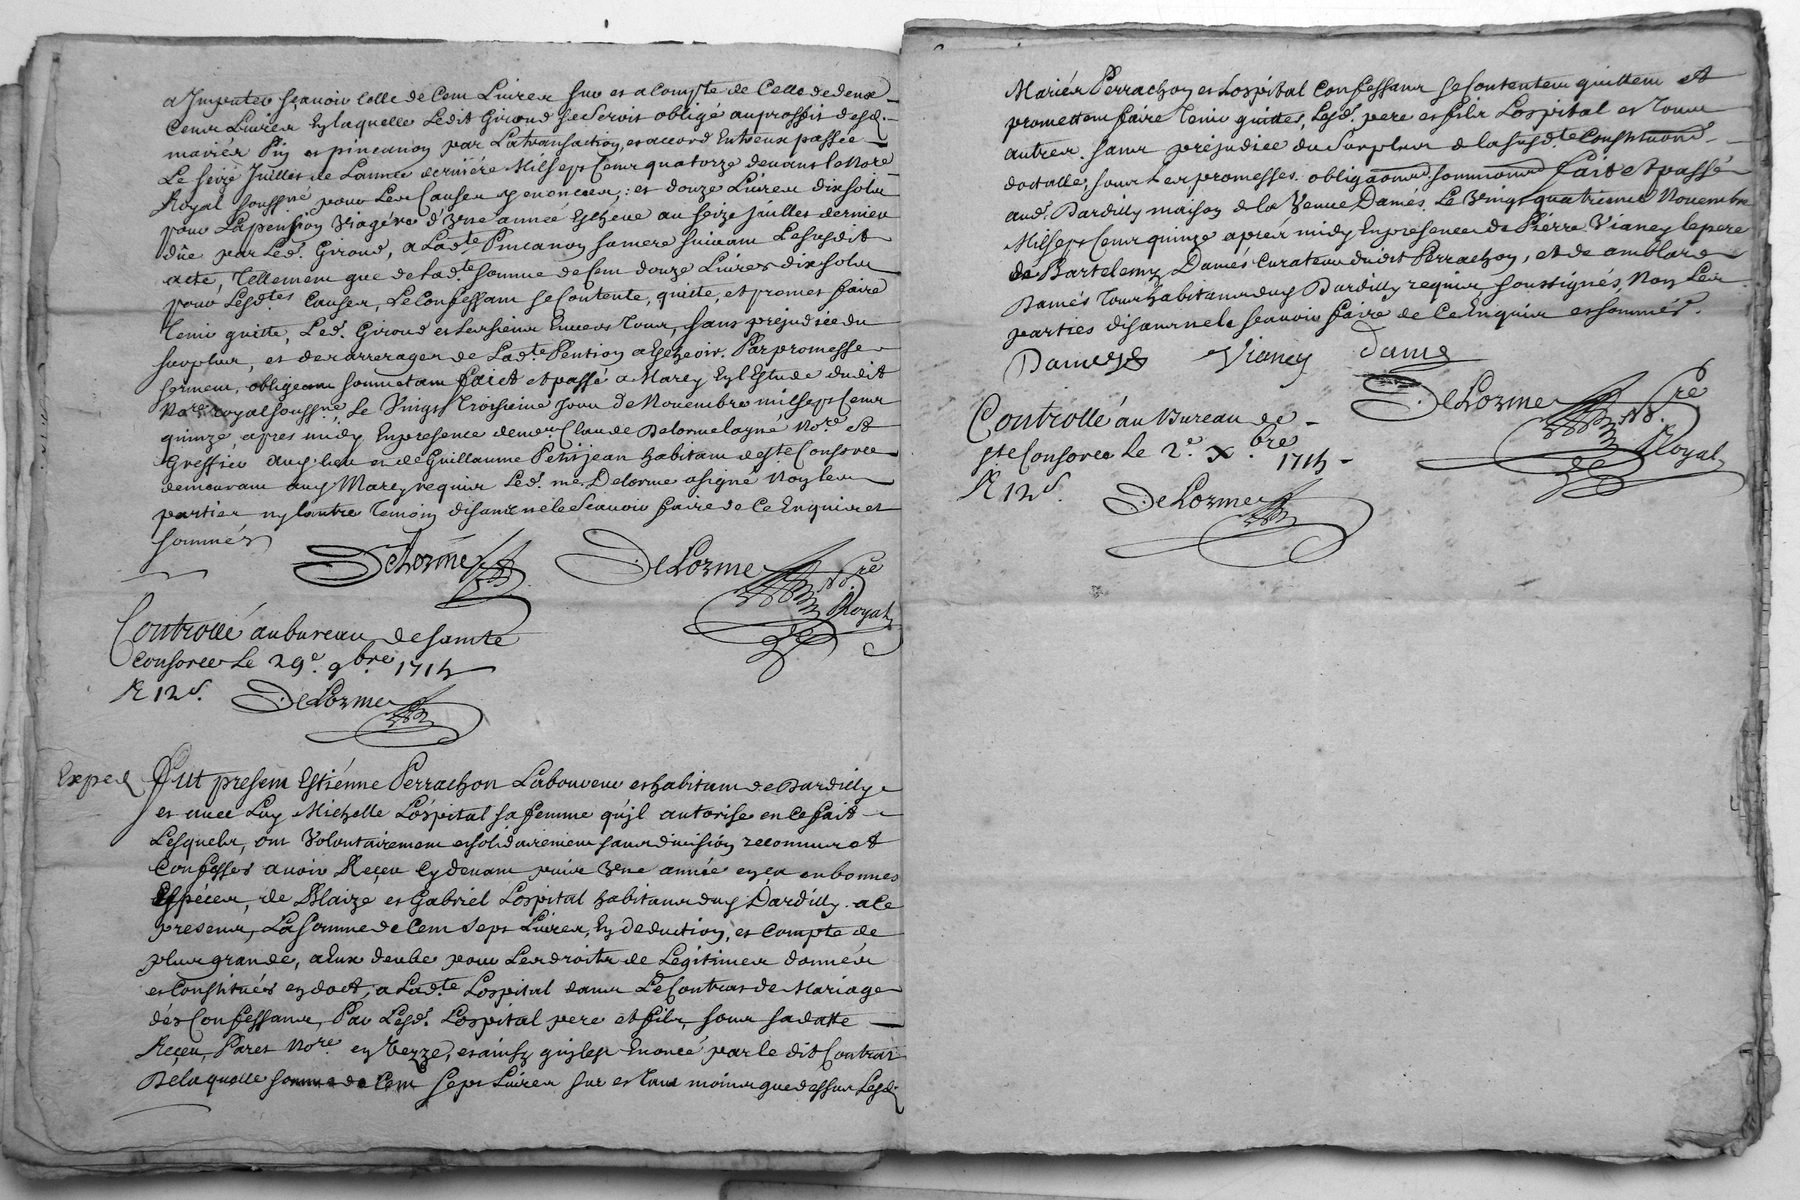 a Imputer sçavoir celle de Cent Livres sur et a compte de Celle de deux
Cents Livres En laquelle Ledit Giroud se seroit obligé au proffit desd.
mariés Pin et pincanon par La transaction, et accord Entreux passée
Le seize Juillet de L'année dernière Mil sept Cent quatorze devant le Nore
Royal soussné pour Les Causes y enoncées; et douze Livres dix sols
pour La pension Viagére d'Vne année Echeüe au seize Juillet dernier
dûe par Led. Giroud, a Ladte Pincanon sa mere suivant Le susdit
acte, Tellement que de Ladte somme de Cent douze Livres dix sols
pour Lesdtes Causes, Le Confessant se Contente, quitte, et promet faire
tenir quitte, Led. Giroud et Les siens Envers tous, sans préjudice du
surplus, et des arrerages de Ladte Pention a Echeoir. Par promesse
serment, obligeant soumetant fait et passé a Marcy En l'Estude dudit
Nore royal soussné, Le Vingt Troisieme Jour de Novembre mil sept Cent
quinze, apres midy En presence de mer Claude Delorme Layné Nore et
Greffier aud. lieu et de Guillaume Petitjean habitant de Ste Consorce
demeurant aud. Marcy requis Led. me Delorme a signé Non les
parties ny lautre Temoin disants ne le Scavoir faire de Ce Enquis et
sommés
DeLorme DeLorme Nre
Royal
Controllé au bureau de Sainte
Consorce Le 29e 9bre 1715
R 12s.
DeLorme
Exped
Fut present Estiénne Perrachon Laboureur et habitant de Dardilly
et avec Luy Michelle Lospital sa femme qu'jl autorise en ce fait
Lesquels, ont Volontairement et solidairement sans division reconnu et
Confessés avoir Reçeu Cy devant puis Vne année en ça en bonnes
Espéces, de Blaize et Gabriel Lospital habitants dud. Dardilly a ce
presents, La somme de Cent sept Livres, En deduction, et Compte de
plus grande, a Eux deube pour Les droits de Légitimes donnés
et Constitués en dot, a Ladte Lospital dans Le Contrat de Mariage
des Confessants, Par Lesd. Lospital pere et fils, sous sa datte
Reçeu, Paret Nore en Vezze, et ainsy qu'jl est Enoncé par le dit Contrat
De laquelle somme de Cent sept Livres sur et tant moins que dessus Lesd.
Mariés Perrachon et Lospital Confessants se Contentent quittent et
promettent faire Tenir quittes, Lesd. pere et fils Lospital et Tous
autres sans préjudice du Surplus de la susdte Constitution
dottalle, sous Les promesses. obligaons, soumissions fait et passé
aud. Dardilly maison de la Veuve Damés. Le Vingt quatrieme Novembre
Mil sept Cent quinze aprés midy En presence de Piérre Vianey le pere
de Bartelemy Damés Curateur dudit Perrachon, et de amblard
Damés Tous habitants dud. Dardilly requis soussignés, Non Les
parties disants ne le Scavoir faire de Ce Enquis et sommés.
Dames Vianey Dames
DeLorme Nre
Royal
Controllé au Bureau de
Ste Consorce le 2e Xbre 1715
R 12s.
DeLorme